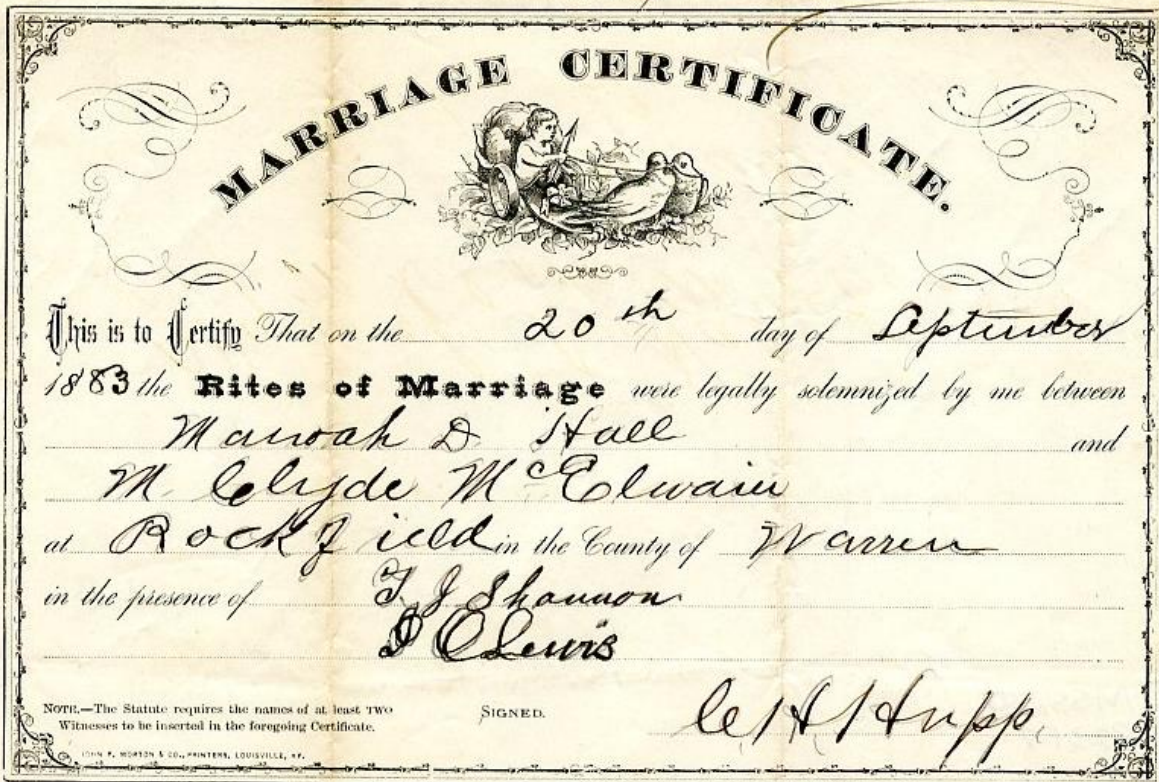 MARRIAGE CERTIFICATE.
This is to Certify That on the 20th day of September
1883 the Rites of Marriage were legally solemnized by me between
Manoah D Hall and
M. Clyde McElwain
at Rockfield in the County of Warren
in the presence of T. J. Shannon
Lewis
NOTE.—The Statute requires the names of at least TWO
Witnesses to be inserted in the foregoing Certificate.
SIGNED. C H Hupp.
JOHN P. MORTON & CO., PRINTERS, LOUISVILLE, KY.